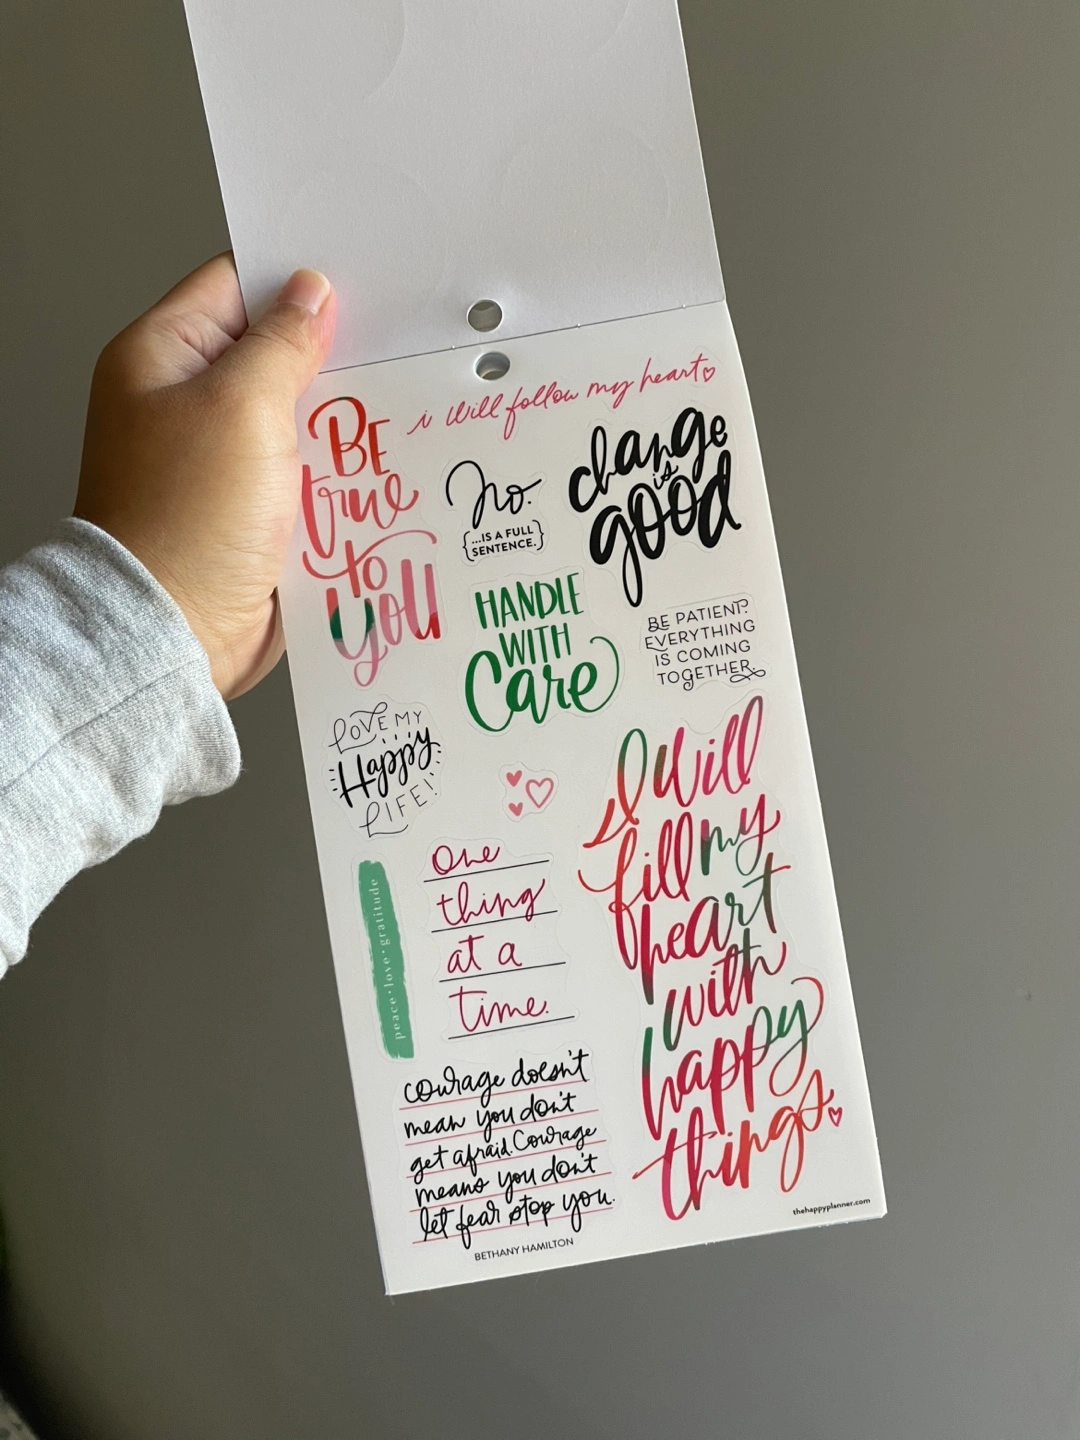 i will follow my heart
BE
true
to
you
No.
{...IS A FULL
SENTENCE.}
change
is
good
HANDLE
WITH
Care
BE PATIENT.
EVERYTHING
IS COMING
TOGETHER.
LOVE MY
Happy
LIFE!
I will
fill my
heart
with
happy
things
peace • love • gratitude
One
thing
at a
time.
courage doesn't
mean you don't
get afraid. Courage
means you don't
let fear stop you.
BETHANY HAMILTON
thehappyplanner.com